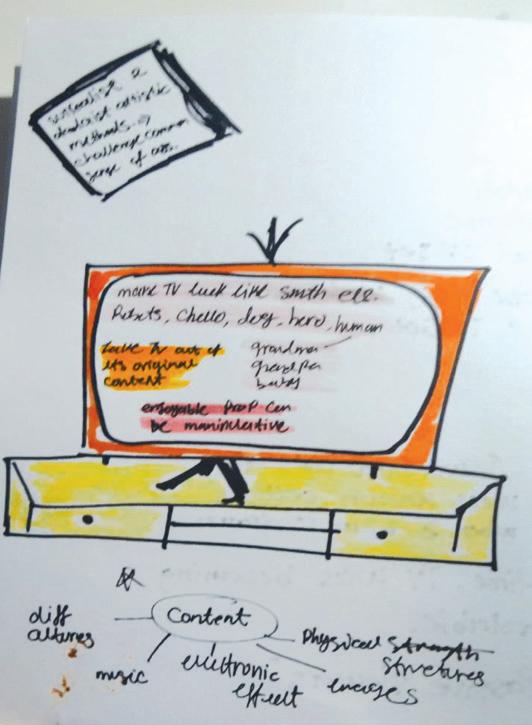 surrealist &
dadaist artistic
methods →
challenge common
sense of art.
make TV look like smth else.
Robots, chello, dog, hero, human
take TV out of
its original
content
grandma
grandpa
baby
enjoyable prop can
be manipulative
Content
diff
cltures
music
electronic
effect
images
Physical Strength
Structures